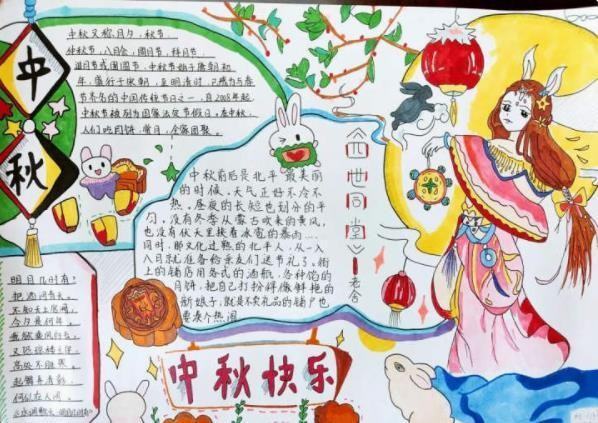 中秋
中秋又称月夕、秋节、
仲秋节、八月会、追月节、拜月节、
或团圆节，中秋节始于唐朝初
年，盛行于宋朝，至明清时，已成为与春
节齐名的中国传统节日之一，自2008年起，
中秋节被列为国家法定节假日，在中秋，
人们吃月饼、赏月、全家团聚。
中秋前后是北平最美丽
的时候。天气正好不冷不
热，昼夜的长短也划分的平
匀。没有冬季从蒙古吹来的黄风，
也没有伏天里挟着冰雹的暴雨……
同时，那文化过熟的北平人，从一入
八月就准备给亲友们送节礼了。街
上的铺店用各式的酒瓶，各种馅的
月饼，把自己打扮得像鲜艳的
新娘子；就是不卖礼品的铺户也
要凑个热闹
《四世同堂》—老舍
明月几时有？
把酒问青天。
不知天上宫阙，
今夕是何年。
我欲乘风归去，
又恐琼楼玉宇，
高处不胜寒。
起舞弄清影，
何似在人间。
中秋快乐